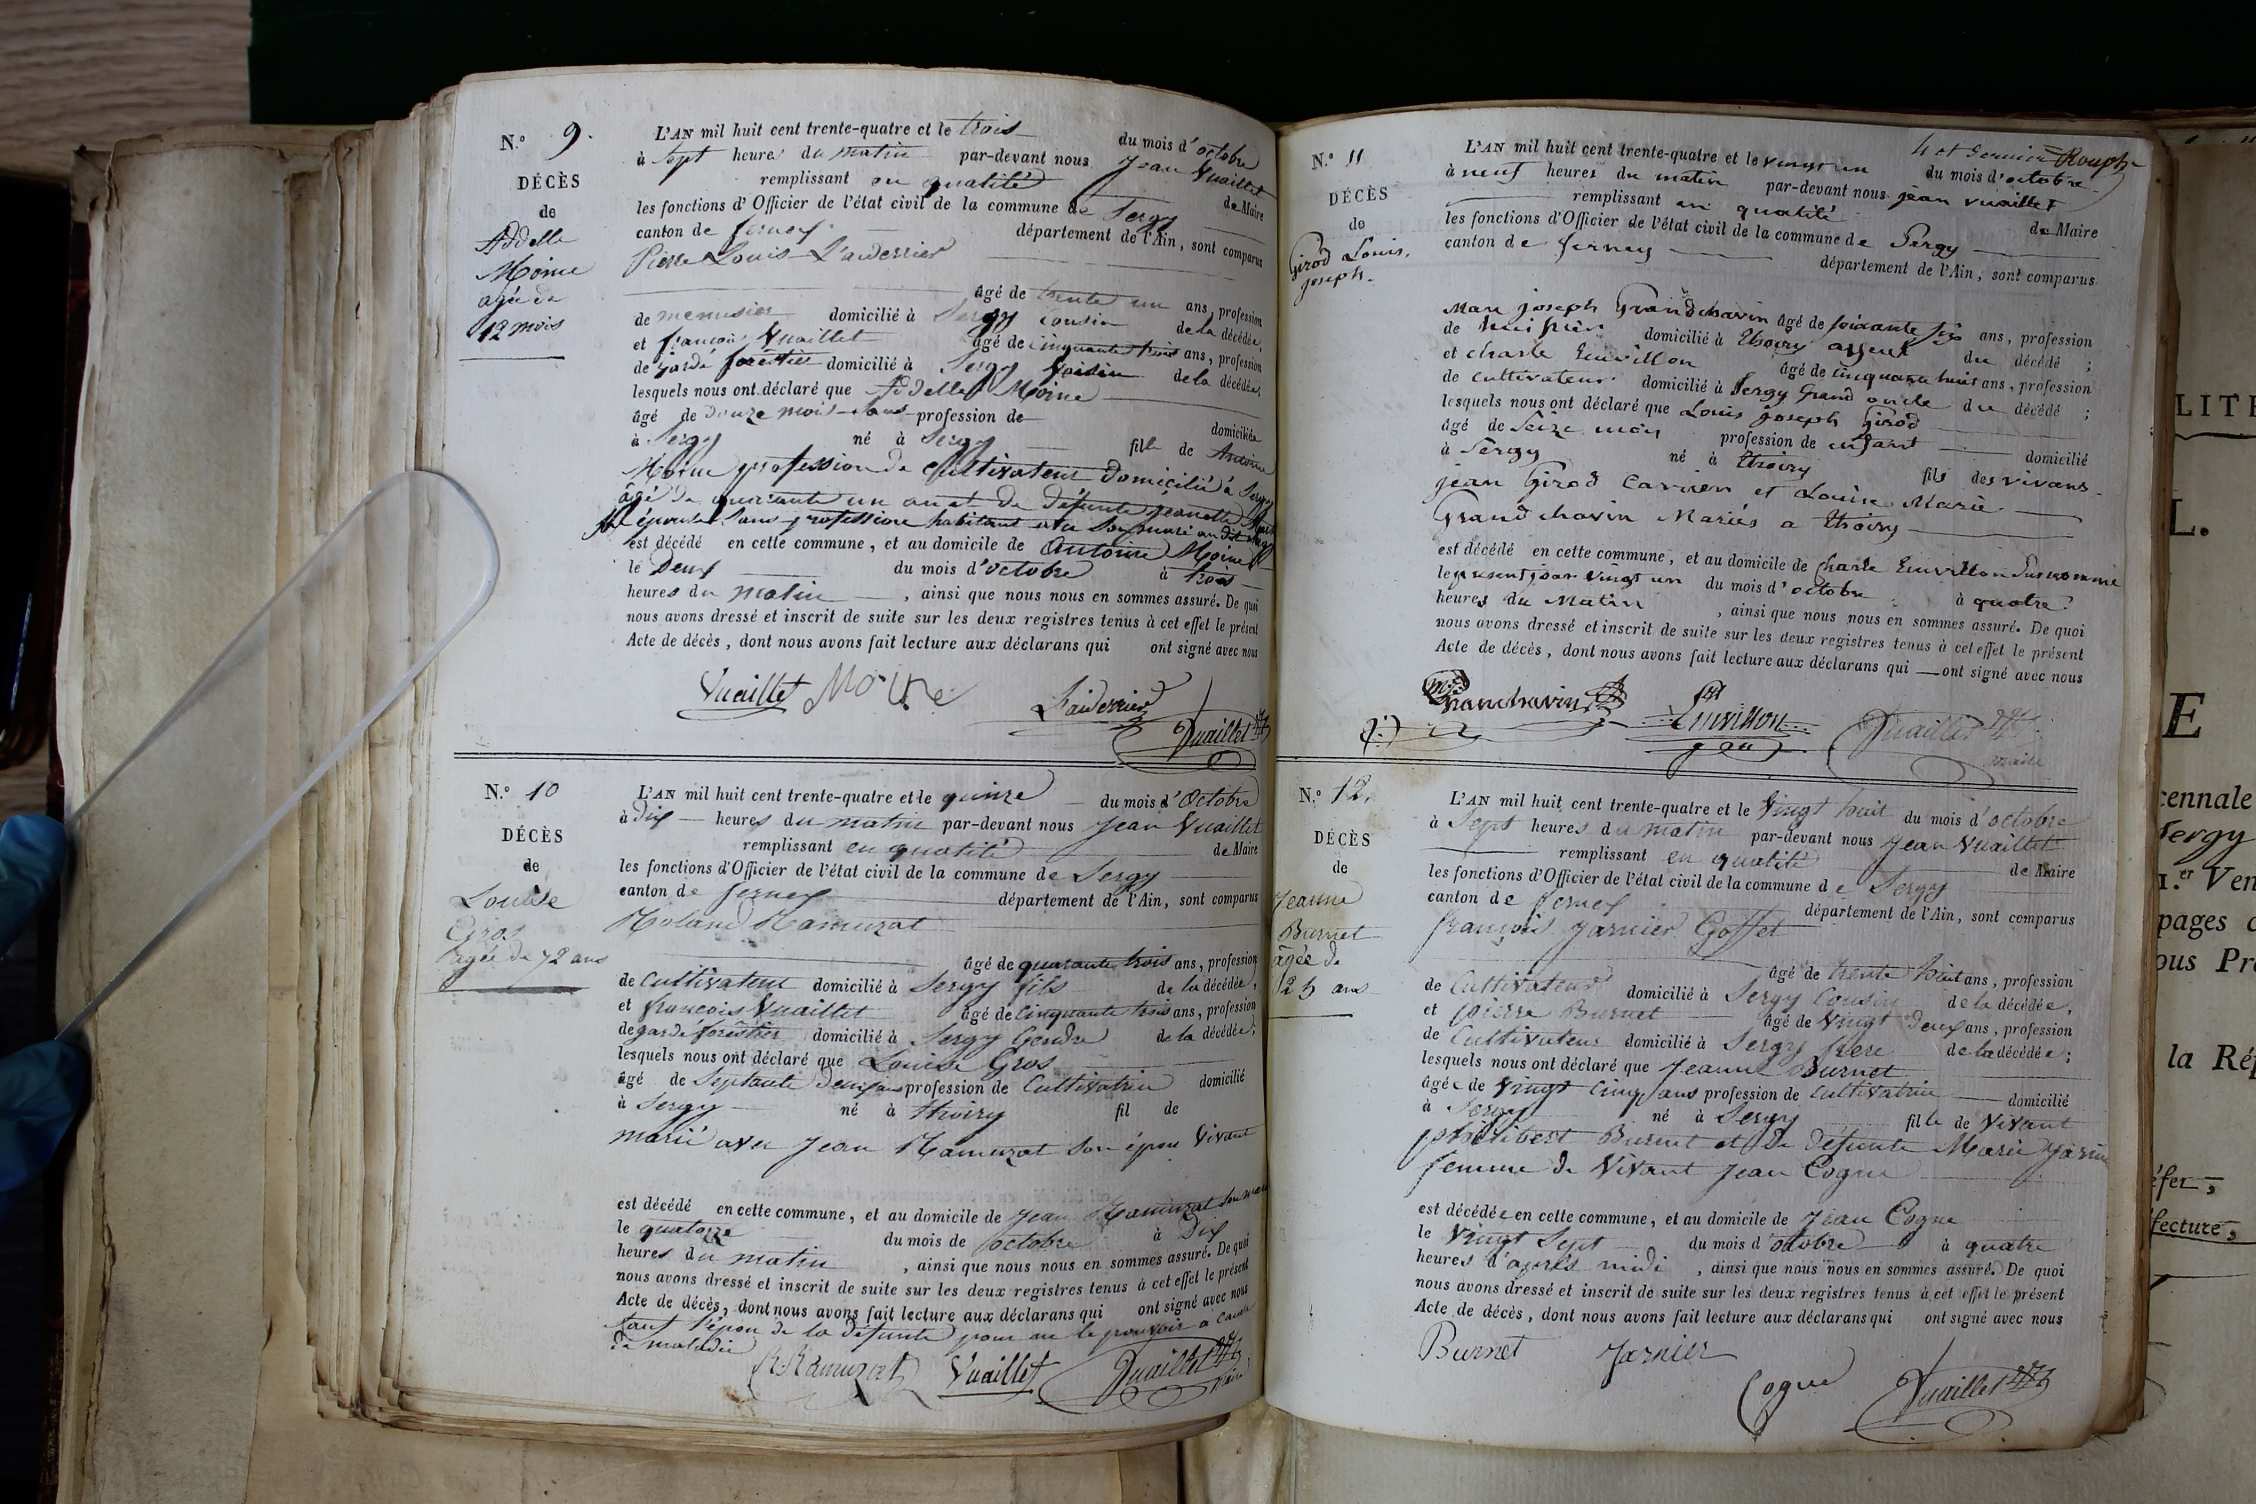 N.° 9.
DÉCÈS
de
Addelle
Moine
agée de
12 mois
L'AN mil huit cent trente-quatre et le trois du mois d'octobre
à sept heures du matin par-devant nous Jean Vuaillet
remplissant en qualité de Maire
les fonctions d'Officier de l'état civil de la commune de Sergy
canton de ferney département de l'Ain, sont comparus
Pierre Louis Lauderrier
âgé de trente un ans, profession
de menusier domicilié à Sergy cousin de la décédée,
et françois Vuaillet âgé de cinquante trois ans, profession
de garde forestier domicilié à Sergy voisin de la décédée,
lesquels nous ont déclaré que Addelle Moine
âgé de douze mois sans profession de domiciliée
à Sergy né à Sergy fille de Antoine
Moine profession de cultivateur domicilié à Sergy
âgé de quarante un an et de défunte jeanette
épouse sans profession habitant avec son mari au dit
est décédé en cette commune, et au domicile de Antoine Moine
le Deux du mois d'octobre à trois
heures du matin, ainsi que nous nous en sommes assuré. De quoi
nous avons dressé et inscrit de suite sur les deux registres tenus à cet effet le présent
Acte de décès, dont nous avons fait lecture aux déclarans qui ont signé avec nous
Vuaillet Moine Lauderrier
Vuaillet
N.° 10
DÉCÈS
de
Louise
Gros
agée de 72 ans
L'AN mil huit cent trente-quatre et le quinze du mois d'Octobre
à dix heures du matin par-devant nous Jean Vuaillet
remplissant en qualité de Maire
les fonctions d'Officier de l'état civil de la commune de Sergy
canton de ferney département de l'Ain, sont comparus
Roland Ramuzat
âgé de quarante trois ans, profession
de Cultivateur domicilié à Sergy fils de la décédée,
et françois Vuaillet âgé de cinquante trois ans, profession
de garde forestier domicilié à Sergy Gendre de la décédée;
lesquels nous ont déclaré que Louise Gros
âgé de Septante deux ans profession de Cultivatrice domicilié
à Sergy né à thoiry fil de
marié avec Jean Ramuzat son épou Vivant
est décédé en cette commune, et au domicile de Jean Ramuzat son mari
le quatorze du mois de octobre à Dix
heures du matin, ainsi que nous nous en sommes assuré. De quoi
nous avons dressé et inscrit de suite sur les deux registres tenus à cet effet le présent
Acte de décès, dont nous avons fait lecture aux déclarans qui ont signé avec nous
sauf l'épou de la défunte pour ne le pouvoir a cause
de maladie
R Ramuzat Vuaillet Vuaillet maire
4 et dernier Rouph
N.° 11
DÉCÈS
de
Girod Louis,
joseph.
L'AN mil huit cent trente-quatre et le vingt un du mois d'octobre
à neuf heures du matin par-devant nous jean vuaillet
remplissant en qualité de Maire
les fonctions d'Officier de l'état civil de la commune de Sergy
canton de ferney département de l'Ain, sont comparus
Marc joseph Grandchavin âgé de soixante six ans, profession
de huissier domicilié à thoiry ayeul du décédé;
et charle Emvillon âgé de cinquante huit ans, profession
de cultivateur domicilié à Sergy Grand oncle du décédé;
lesquels nous ont déclaré que Louis joseph Girod
âgé de seize mois profession de enfant domicilié
à Sergy né à thoiry fils des vivans
jean Girod et Louise Marie
Grandchavin Mariés a thoiry
est décédé en cette commune, et au domicile de charle Emvillon Susnommé
le présent jour vingt un du mois d'octobre à quatre
heures du Matin, ainsi que nous nous en sommes assuré. De quoi
nous avons dressé et inscrit de suite sur les deux registres tenus à cet effet le présent
Acte de décès, dont nous avons fait lecture aux déclarans qui ont signé avec nous
Granchavin Emvillon Vuaillet
maire
N.° 12.
DÉCÈS
de
Jeanne
Burnet
âgée de
25 ans
L'AN mil huit cent trente-quatre et le Vingt huit du mois d'octobre
à Sept heures du matin par-devant nous Jean Vuaillet
remplissant en qualité de Maire
les fonctions d'Officier de l'état civil de la commune de Sergy
canton de ferney département de l'Ain, sont comparus
françois Jarnier Goffet
âgé de trente huit ans, profession
de Cultivateur domicilié à Sergy Cousin de la décédée,
et pierre Burnet âgé de Vingt Deux ans, profession
de Cultivateur domicilié à Sergy frere de la décédée;
lesquels nous ont déclaré que Jeanne Burnet
âgée de vingt cinq ans profession de Cultivatrice domicilié
à Sergy né à Sergy fille de Vivant
philibert Burnet et de défunte Marie Jarnier
femme de Vivant Jean Cogne
est décédée en cette commune, et au domicile de Jean Cogne
le Vingt Sept du mois d'octobre à quatre
heures d'après midi, ainsi que nous nous en sommes assuré. De quoi
nous avons dressé et inscrit de suite sur les deux registres tenus à cet effet le présent
Acte de décès, dont nous avons fait lecture aux déclarans qui ont signé avec nous
Burnet Jarnier
Cogne Vuaillet
LITÉ
L.
E
cennale
Sergy
1.er Ven
pages
ous Pré
la Rép
éfet,
fecture,